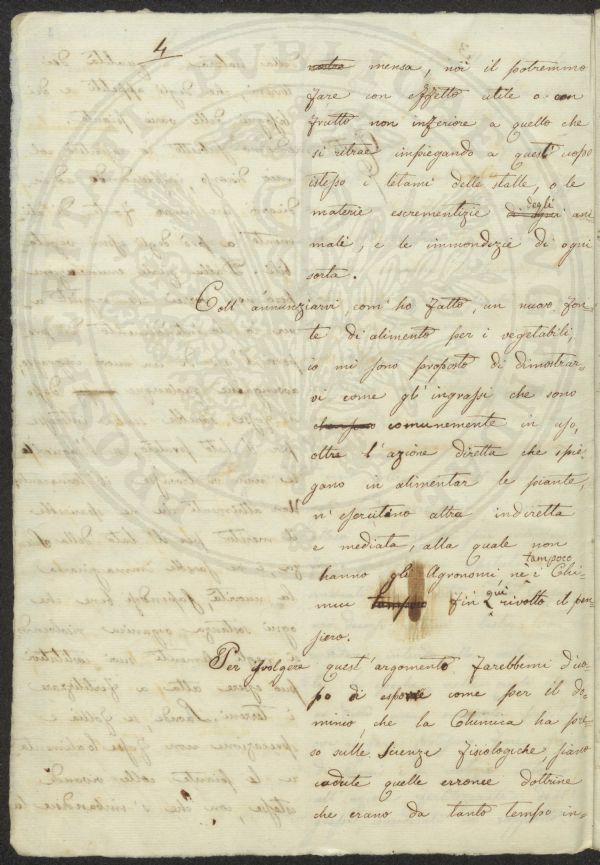 4
nostra mensa, noi il potremmo
fare con effetto utile o con
frutto non inferiore a quello che
si ritrae impiegando a quest'uopo
istesso i letami delle stalle, o le
materie escrementizie degli ani
mali, e le immondezie di ogni
sorta.
Coll'annunziarvi, com'ho fatto, un nuovo fon-
te di alimento per i vegetabili,
io mi sono proposto di dimostrar-
vi come gl'ingrassi che sono
comunemente in uso,
oltre l'azione diretta che spie-
gano in alimentar le piante,
n'esercitino altra indiretta
e mediata, alla quale non
hanno gli Agronomi nè i Chi-
tampoco
mici fin qui rivolto il pen-
siero.
Per isvolgere quest'argomento farebbemi d'uo-
po di esporre come per il do-
minio, che la Chimica ha pre-
so sulle Scienze fisiologiche, siano
cadute quelle erronee dottrine
che erano da tanto tempo in-